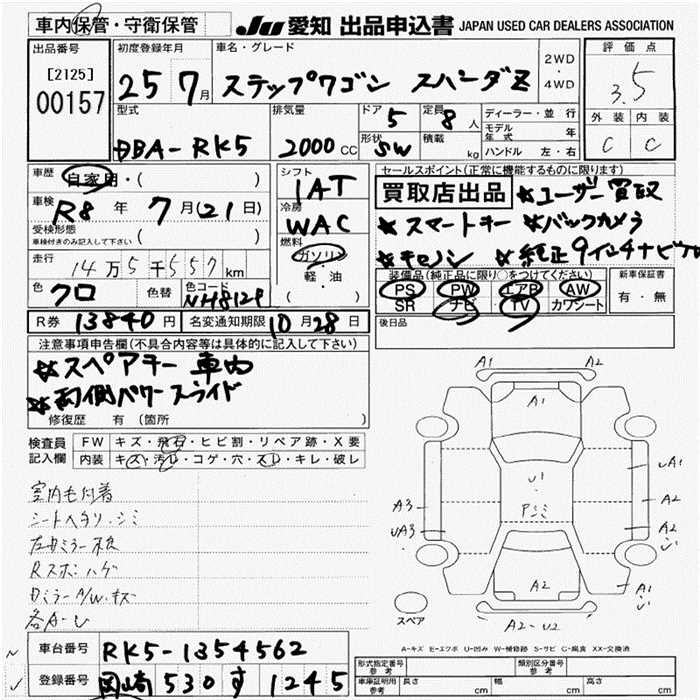 車内保管・守衛保管
JU 愛知 出品申込書 JAPAN USED CAR DEALERS ASSOCIATION
出品番号
[2125]
00157
初度登録年月
25 7月
車名・グレード
ステップワゴン スパーダZ
2WD
・
4WD
評価点
3.5
外装 内装
C C
型式
DBA-RK5
排気量
2000 CC
ドア
5
定員
8人
形状
SW
積載
kg
ディーラー・並行
モデル年式 年
ハンドル 左・右
車歴
自家用・( )
車検
R8年 7月(21日)
受検形態
車検付きのみ記入して下さい ( )
走行
14万5千557km
色
クロ
色替
色コード
NH812P
シフト
IAT
冷房
WAC
燃料
ガソリン
軽・油
( )
セールスポイント(正常に機能するものに限ります)
買取店出品 ★ユーザー買取
★スマートキー ★バックカメラ
★キセノン ★純正9インチナビTV
装備品(純正品に限り○をつけてください)
PS PW エアB AW
SR ナビ TV カワシート
新車保証書
有・無
R券 13840円
名変通知期限 10月28日
後日品
注意事項申告欄(不具合内容等は具体的に記入して下さい)
★スペアキー 車内
★両側パワースライド
修復歴 有(箇所 )
検査員記入欄
FW キズ・飛石・ヒビ割・リペア跡・X要
内装 キズ・汚レ・コゲ・穴・スレ・キレ・破レ
室内毛付着
シートヘタリ・シミ
Rスポハゲ
ミラー A/W・キズ
各A-U
A1 A2
A1
U1
Pシミ
A2
UA1
A2
A2
A1
A3
UA3
A2-U2
スペア
A-キズ E-エクボ U-凹み W-補修跡 S-サビ C-腐食 XX-交換済
車台番号
RK5-1354562
登録番号
岡崎 530 す 1245
形式指定番号
参考
類別区分番号
参考
車庫証明用
参考
長さ cm
幅 cm
高さ cm